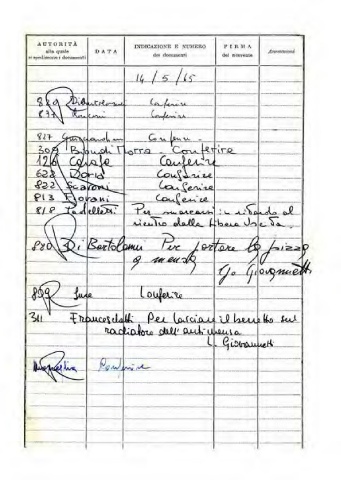 AUTORITÀ
alla quale
si spediscono i documenti
DATA
INDICAZIONE E NUMERO
dei documenti
FIRMA
del ricevente
Annotazioni
14/5/65
Conferire
837 Conferire
827 Conferire
309 Biondi Morra - Conferire
126 Carafa Conferire
622 Doria Conferire
822 Scaroni Conferire
813 Piovani Conferire
818 Per mancanti in ritardo al
rientro dalla Libera Uscita.
880 Di Bartolomei Per portare la pizza
a mensa
G. Giovannetti
899 Conferire
311 Franceschetti Per lasciare il berretto sul
radiatore dell'antimensa
L. Giovannetti
Conferire